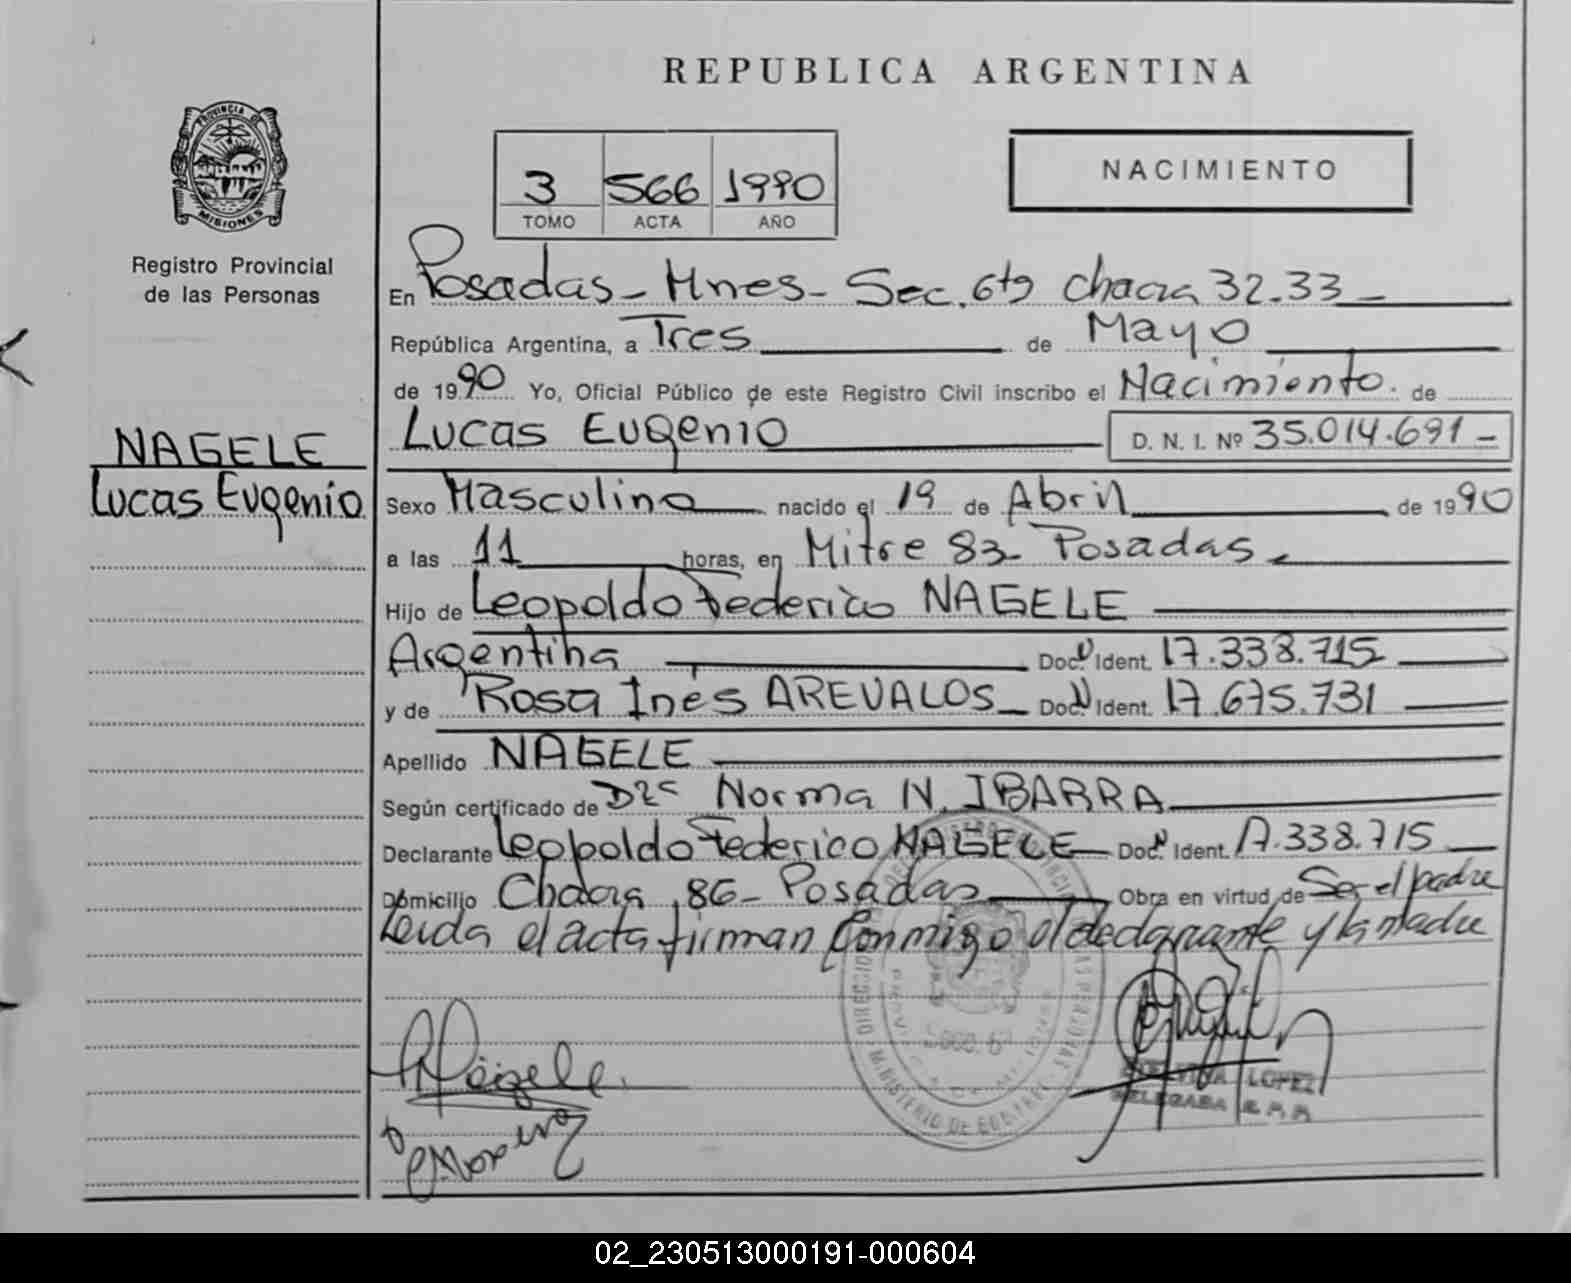 REPUBLICA ARGENTINA
PROVINCIA DE
MISIONES
Registro Provincial
de las Personas
3 566 1990
TOMO ACTA AÑO
NACIMIENTO
En Posadas - Mnes - Sec. 6ta chacra 32.33
República Argentina, a Tres de Mayo
de 1990 Yo, Oficial Público de este Registro Civil inscribo el Nacimiento. de
Lucas Eugenio D. N. I. Nº 35.014.691 -
NAGELE
Lucas Eugenio
Sexo Masculino nacido el 19 de Abril de 1990
a las 11 horas, en Mitre 83 - Posadas -
Hijo de Leopoldo Federico NAGELE
Argentina Doc. Ident. 17.338.715
y de Rosa Inés AREVALOS Doc. Ident. 17.675.731
Apellido NAGELE
Según certificado de Dra Norma N. IBARRA
Declarante Leopoldo Federico NAGELE Doc. Ident. 17.338.715
Domicilio Chacra 86 - Posadas Obra en virtud de Ser el padre
Leida el acta firman conmigo el declarante y la madre
Nägele
LOPEZ
DELEGADA R. P. P.
MINISTERIO DE GOBIERNO
02_230513000191-000604